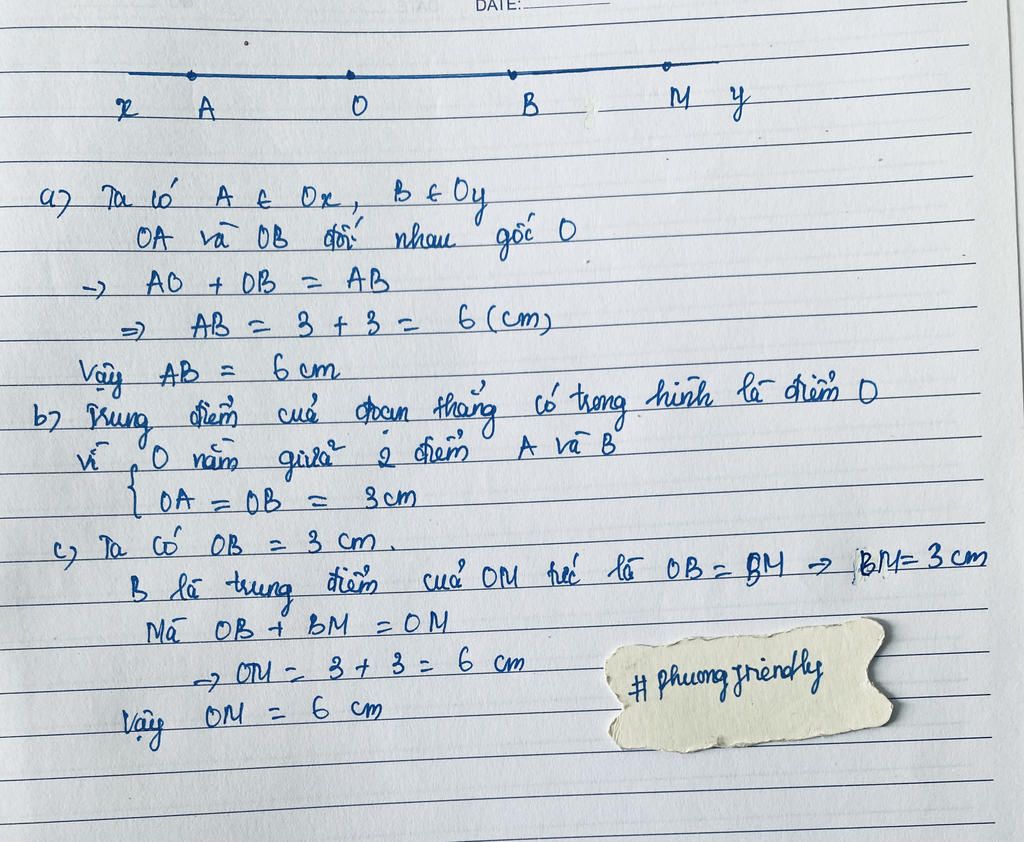 DATE:
x A O B M y
a) Ta có A ∈ Ox, B ∈ Oy
OA và OB đối nhau gốc O
→ AO + OB = AB
⇒ AB = 3 + 3 = 6 (cm)
Vậy AB = 6 cm
b) Trung điểm cuả đoạn thẳng có trong hình là điểm O
vì { O nằm giữa 2 điểm A và B
OA = OB = 3 cm
c) Ta có OB = 3 cm.
B là trung điểm cuả OM tức là OB = BM → BM = 3 cm
Mà OB + BM = OM
→ OM = 3 + 3 = 6 cm
Vậy OM = 6 cm
# phuongfriendly